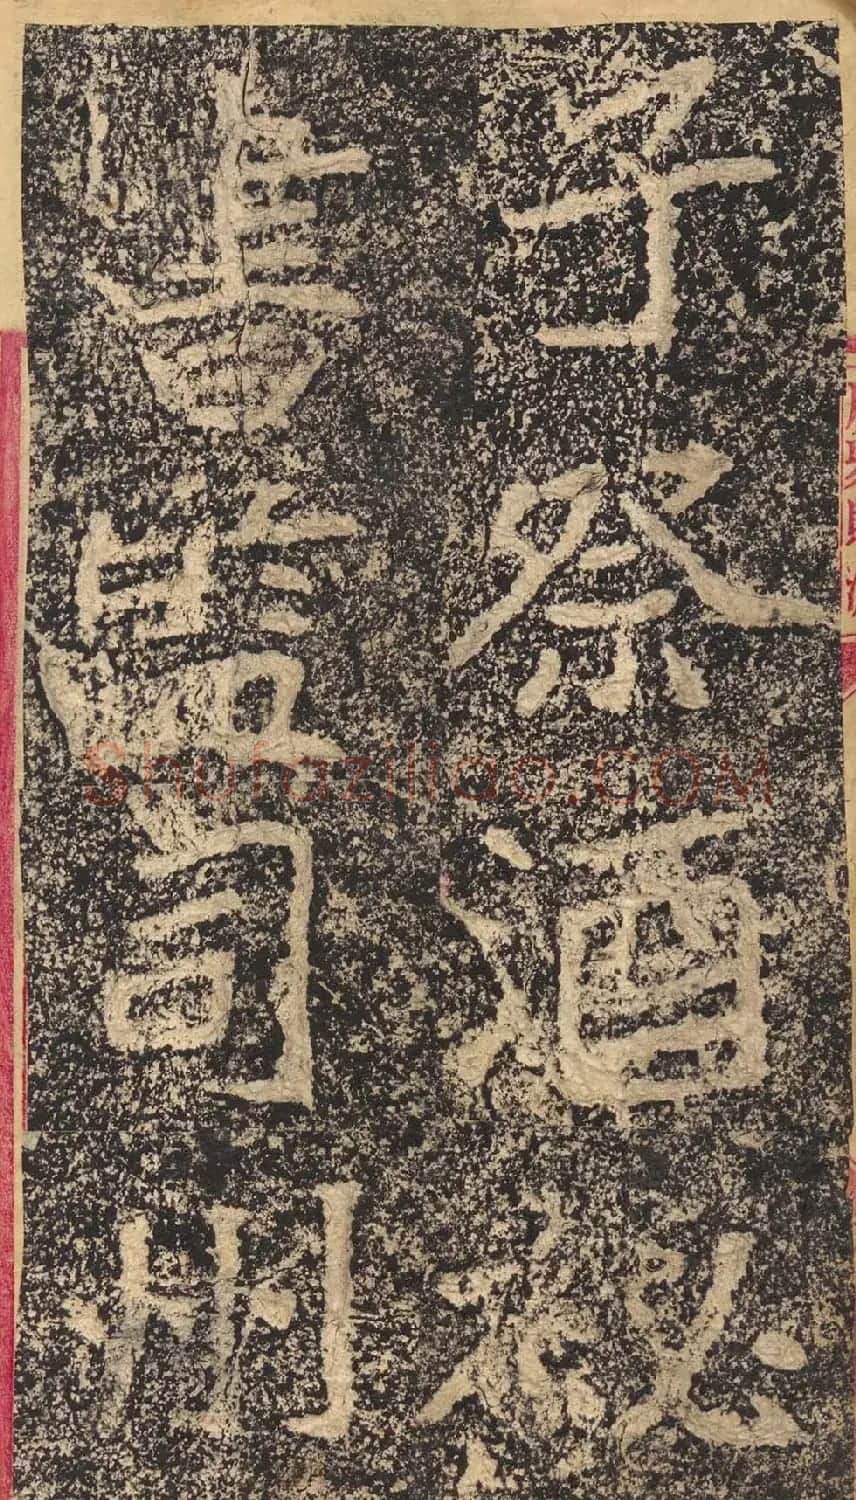 子祭酒秘
書監司州
shufaziliao.com